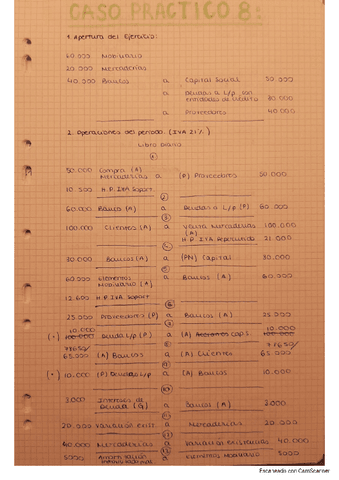 CASO PRÁCTICO 8:
1. Apertura del Ejercicio:
60.000 Mobiliario
20.000 Mercaderías
40.000 Bancos a Capital Social 50.000
a Deudas a L/p con entidades de crédito 30.000
a Proveedores 40.000
2. Operaciones del período. (IVA 21%)
Libro Diario
①
50.000 Compra (A)
Mercaderías a (P) Proveedores 60.000
10.500 H.P. IVA Soport.
②
60.000 Banco (A) a Deudas a L/p (P) 60.000
③
100.000 Clientes (A) a Venta Mercaderías 100.000
(A)
a H.P. IVA Repercutido 21.000
④
30.000 Bancos (A) a (PN) Capital 30.000
⑤
60.000 Elementos
Mobiliario (A) a Bancos (A) 60.000
12.600 H.P. IVA Soport
⑥
25.000 Proveedores (P) a Bancos (A) 25.000
10.000 10.000
(*) Deuda L/p (P) a (A)
65.000 (A) Bancos a (A) Clientes 65.000
(*) 10.000 (P) Deudas L/p a (A) Bancos 10.000
⑩
3.000 Intereses de
Deuda (G) a Bancos (A) 3.000
20.000 Variación exist. a Mercaderías 20.000
40.000 Mercaderías a Variación Existencias 40.000
5000 a Elementos Mobiliario 5000
Escaneado con CamScanner